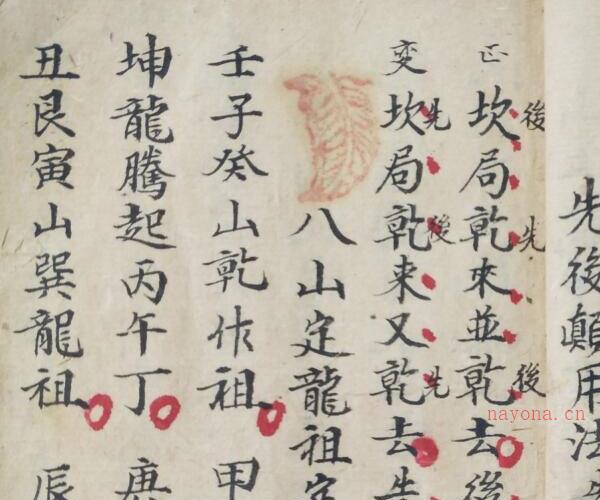 先後顛用法
正 坎局乾來並乾去後
後 先 後
変 坎局乾来又乾去先
先 後 先
八山定龍祖定
壬子癸山乾作祖 甲
坤龍騰起丙午丁 庚
丑艮寅山巽龍祖 辰
nayona.cn